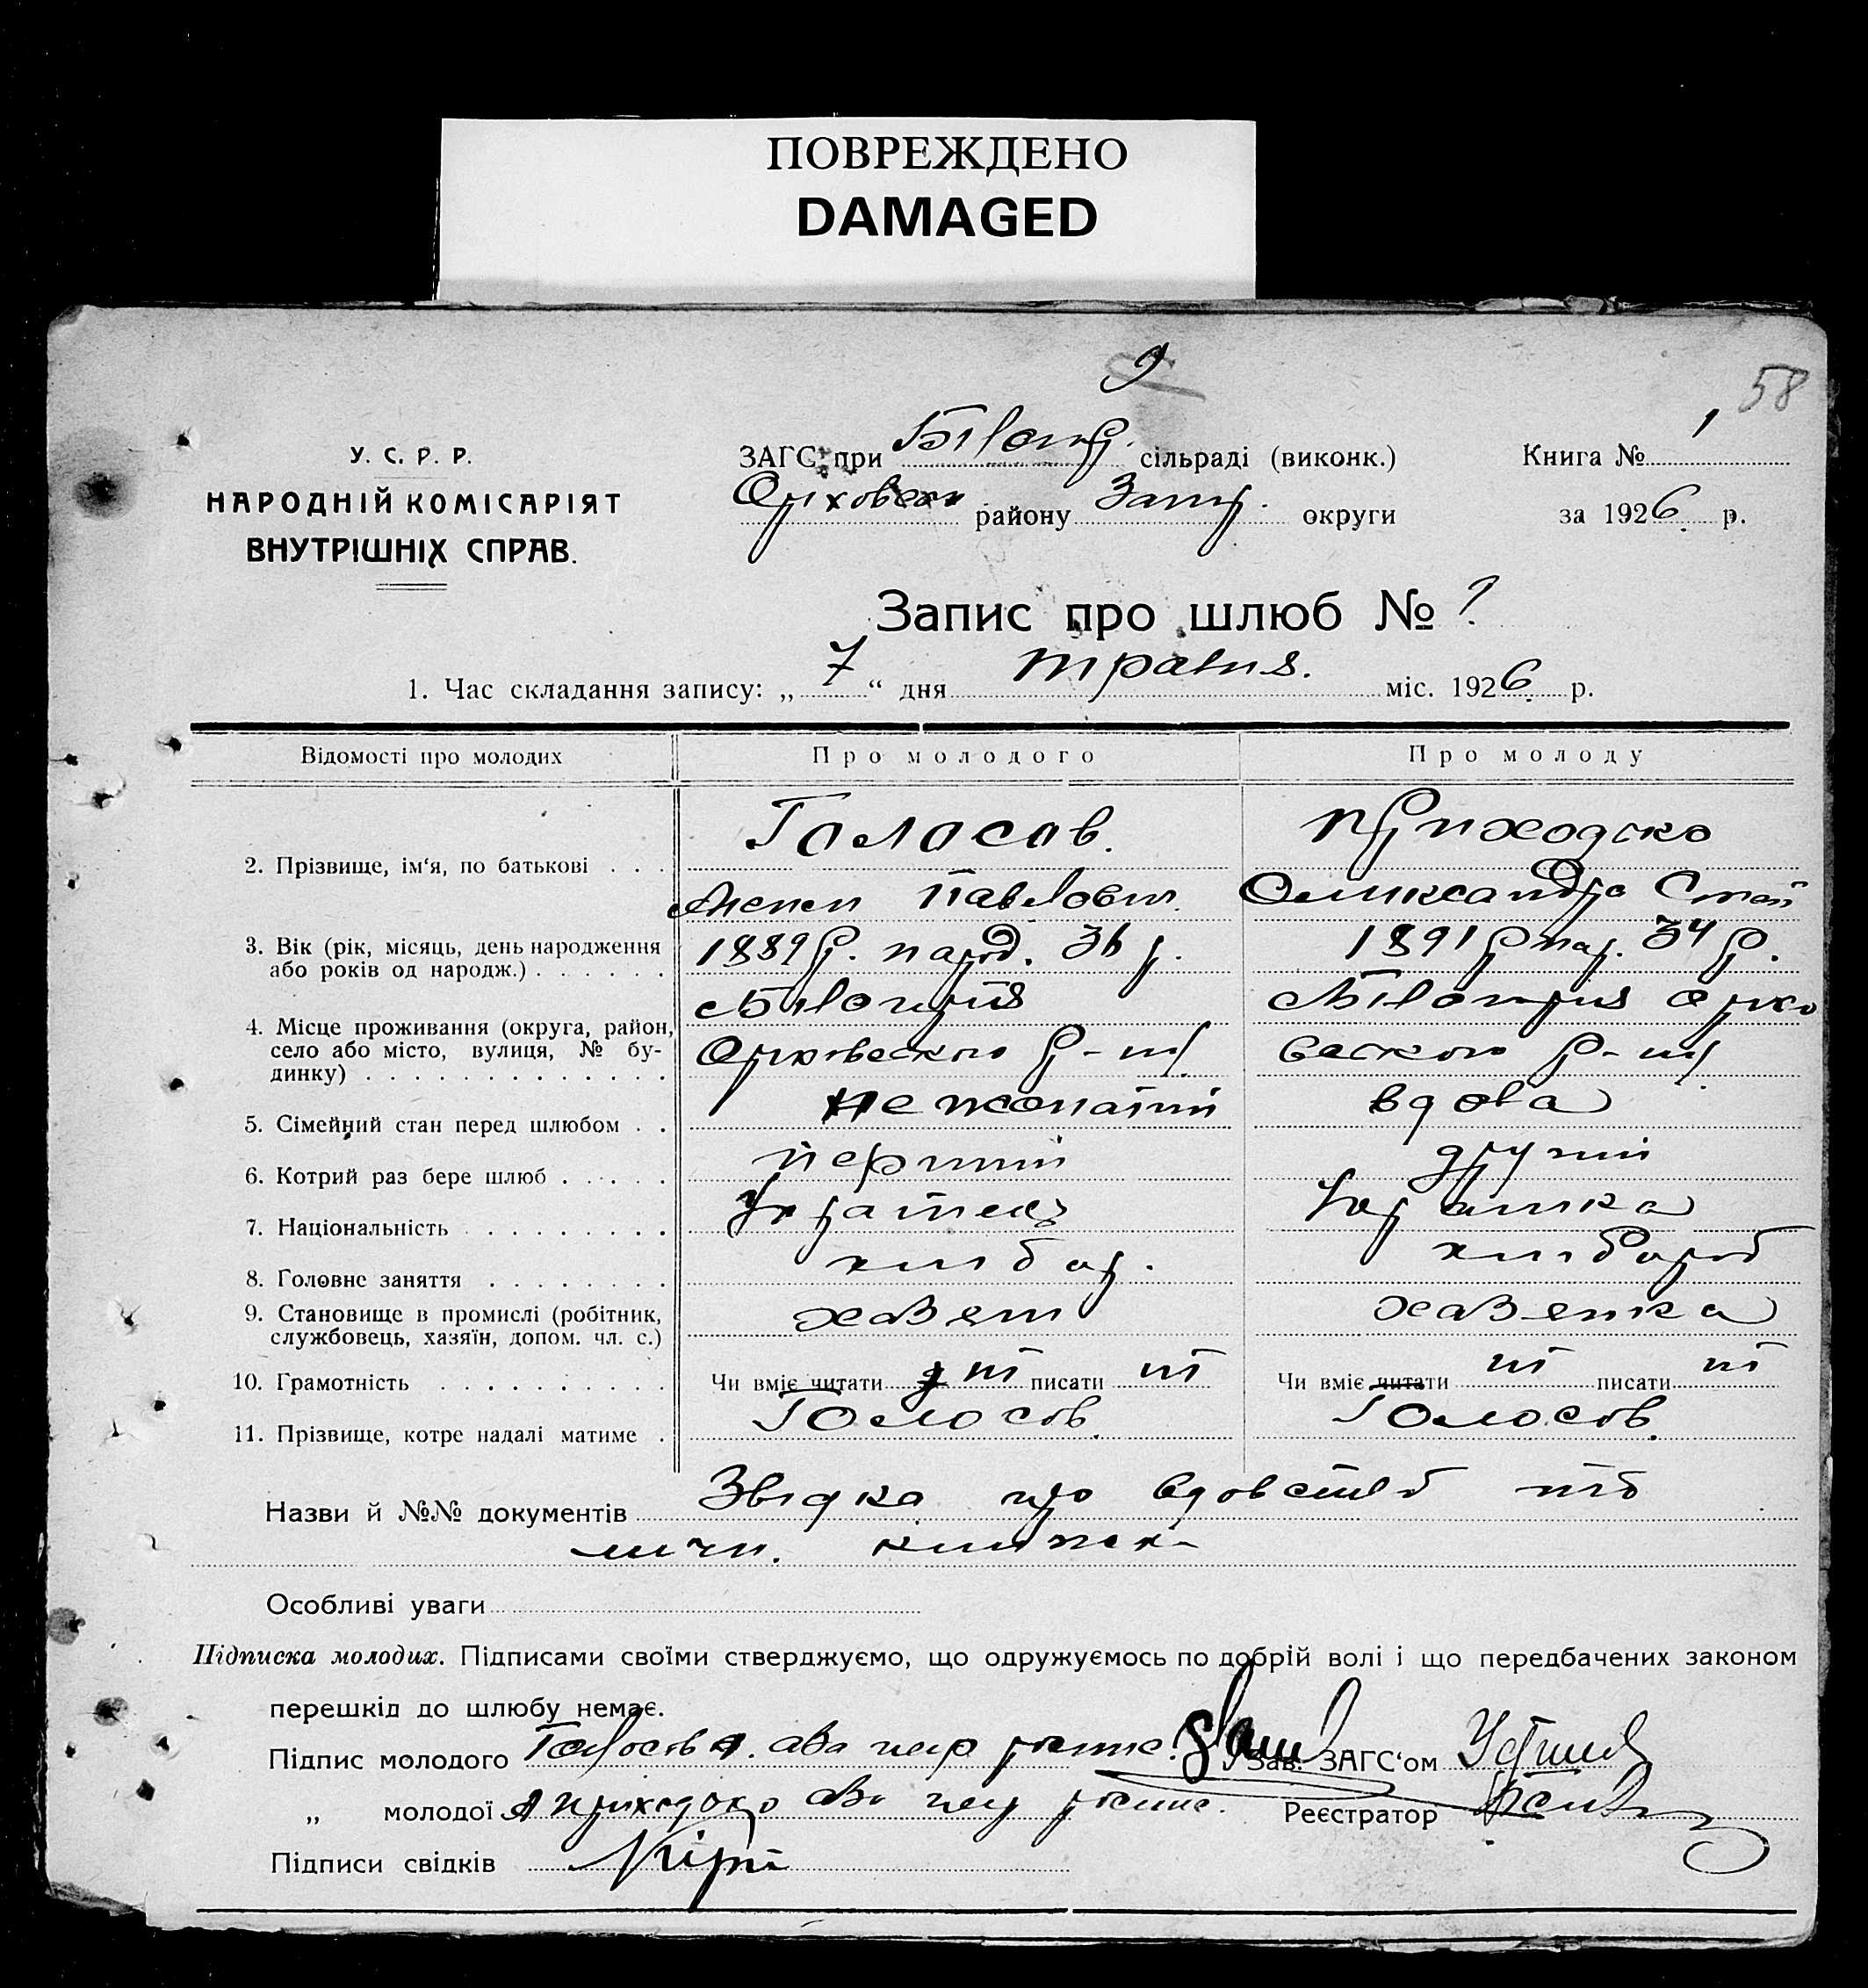 ПОВРЕЖДЕНО
DAMAGED
9
58
У. С. Р. Р.
НАРОДНІЙ КОМІСАРІЯТ
ВНУТРІШНІХ СПРАВ.
ЗАГС при Білоц. сільраді (виконк.)
Оріховськ району Запор. округи
Книга № 1
за 1926 р.
Запис про шлюб №
1. Час складання запису: „ 7 “ дня травня. міс. 1926 р.
Відомості про молодих Про молодого Про молоду
2. Прізвище, ім‘я, по батькові . . . Голосов. Приходько
Павлович Олександра
3. Вік (рік, місяць, день народження 1889 р. народ. 36 р. 1891 р нар. 34 р.
або років од народж.) . . . . . .
4. Місце проживання (округа, район,
село або місто, вулиця, № бу- Оріховського р-ну вського р-ну
динку) . . . . . . . . . . . . .
5. Сімейний стан перед шлюбом . . не жонатий вдова
6. Котрий раз бере шлюб . . . . . перший другий
7. Національність . . . . . . . . . Українець Українка
8. Головне заняття . . . . . . . . хлібор. хлібороб
9. Становище в промислі (робітник, хазяїн хазяйка
службовець, хазяїн, допом. чл. с.)
10. Грамотність . . . . . . . . . . Чи вміє читати ні писати ні Чи вміє читати ні писати ні
11. Прізвище, котре надалі матиме . Голосов. Голосов.
Назви й №№ документів Звідка про вдовство
книжка
Особливі уваги
Підписка молодих. Підписами своїми стверджуємо, що одружуємось по добрій волі і що передбачених законом
перешкід до шлюбу немає.
Підпис молодого Голосов Зав. ЗАГС‘ом
„ молодої Приходько Реєстратор
Підписи свідків